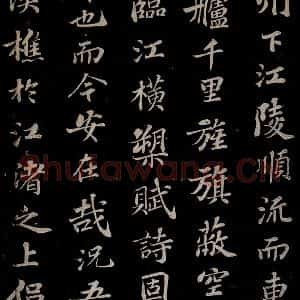 州下江陵順流而東
艫千里旌旗蔽空
臨江橫槊賦詩固
也而今安在哉況吾
漁樵於江渚之上侶
Shufawang.Cn